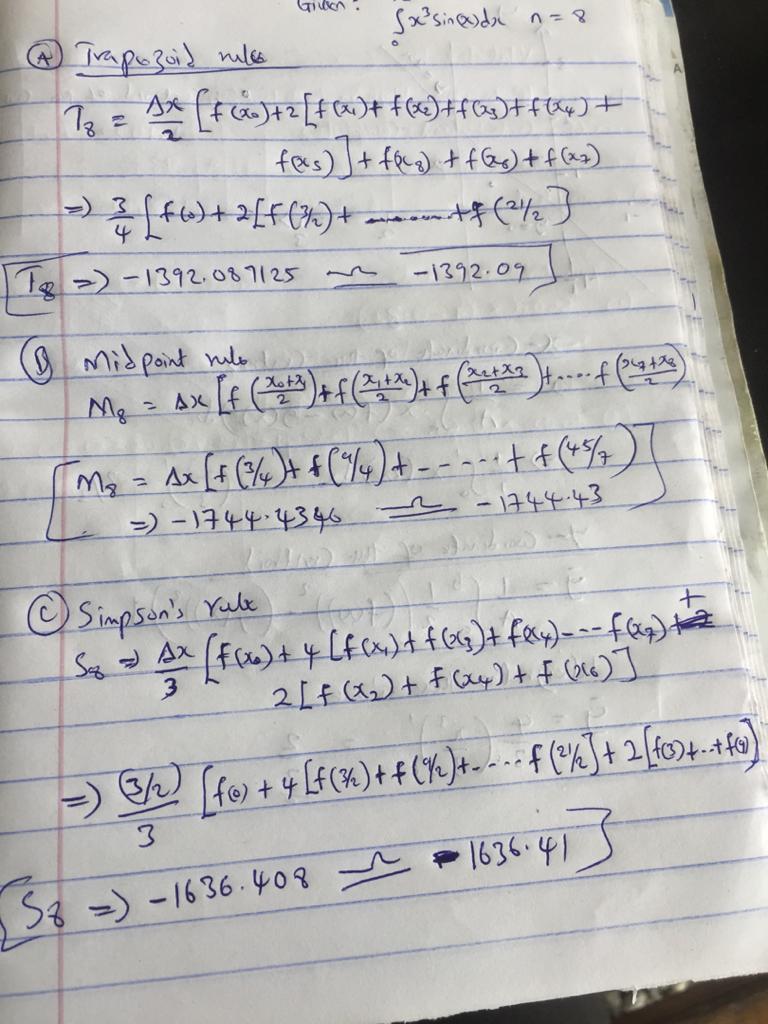 Given: ∫₀ x³sin(x)dx n = 8
Ⓐ Trapozoid rules
T₈ = Δx/2 [f(x₀)+2[f(x₁)+f(x₂)+f(x₃)+f(x₄)+
f(x₅)]+f(x₈)+f(x₆)+f(x₇)
=) 3/4 [f(0)+2[f(3/2)+ ........+f(21/2]
T₈ =) -1392.087125 ≃ -1392.09]
Ⓑ Midpoint rule
M₈ = Δx[f(x₀+x₁/2)+f(x₁+x₂/2)+f(x₂+x₃/2)+....f(x₇+x₈/2)
[M₈ = Δx[f(3/4)+f(9/4)+------+f(45/7)
=) -1744.4346 ≃ -1744.43]
Ⓒ Simpson's rule
S₈ => Δx/3 [f(x₀)+4[f(x₁)+f(x₃)+f(x₄)---f(x₇)+
2[f(x₂)+f(x₄)+f(x₆)]
=) (3/2)/3 [f(0)+4[f(3/2)+f(9/2)+-...f(21/2]+2[f(3)+..+f(9)]
[S₈ =) -1636.408 ≃ -1636.41]